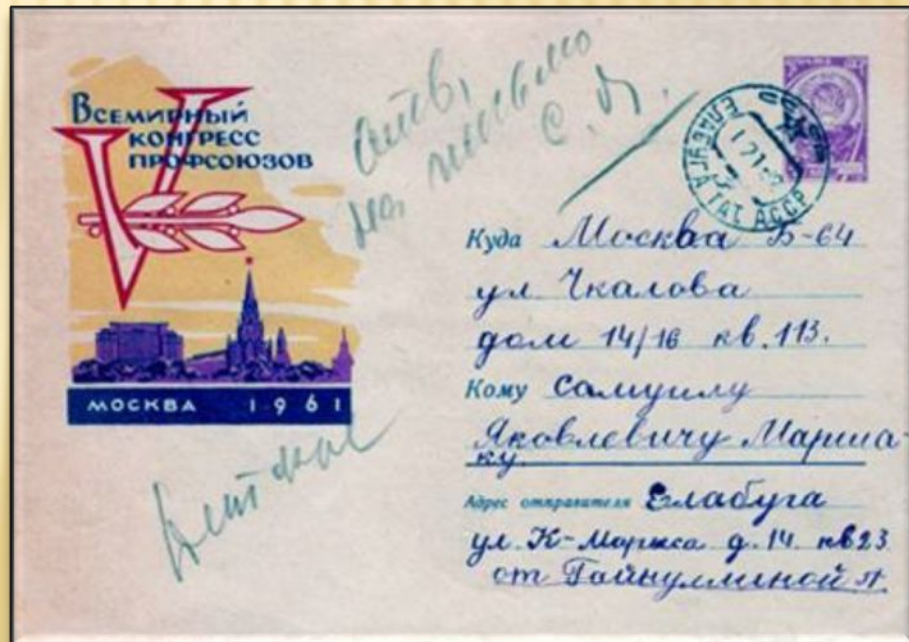 Всемирный
конгресс
профсоюзов
V
МОСКВА 1961
на письмо
С. Я.
ЕЛАБУГА ТАТ. АССР
Куда Москва Б-64
ул. Чкалова
дом 14/16 кв. 113.
Кому Самуилу
Яковлевичу Марша-
ку.
Адрес отправителя Елабуга
ул. К-Маркса д. 14. кв 23
от Гайнуллиной